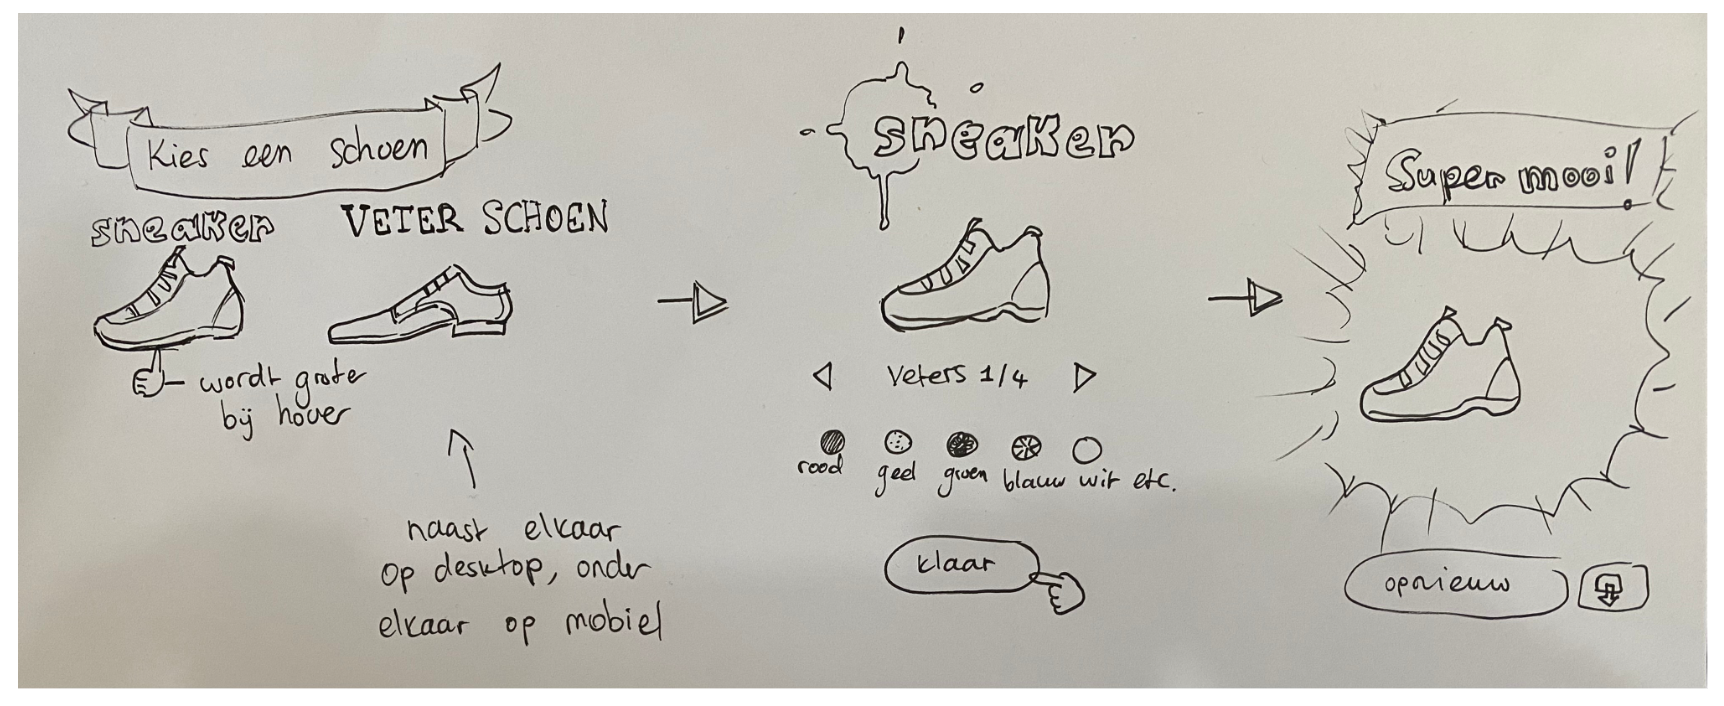 Kies een schoen
sneaker
VETER SCHOEN
wordt groter
bij hover
naast elkaar
op desktop, onder
elkaar op mobiel
sneaker
Veters 1/4
rood geel groen blauw wit etc.
klaar
Super mooi!
opnieuw